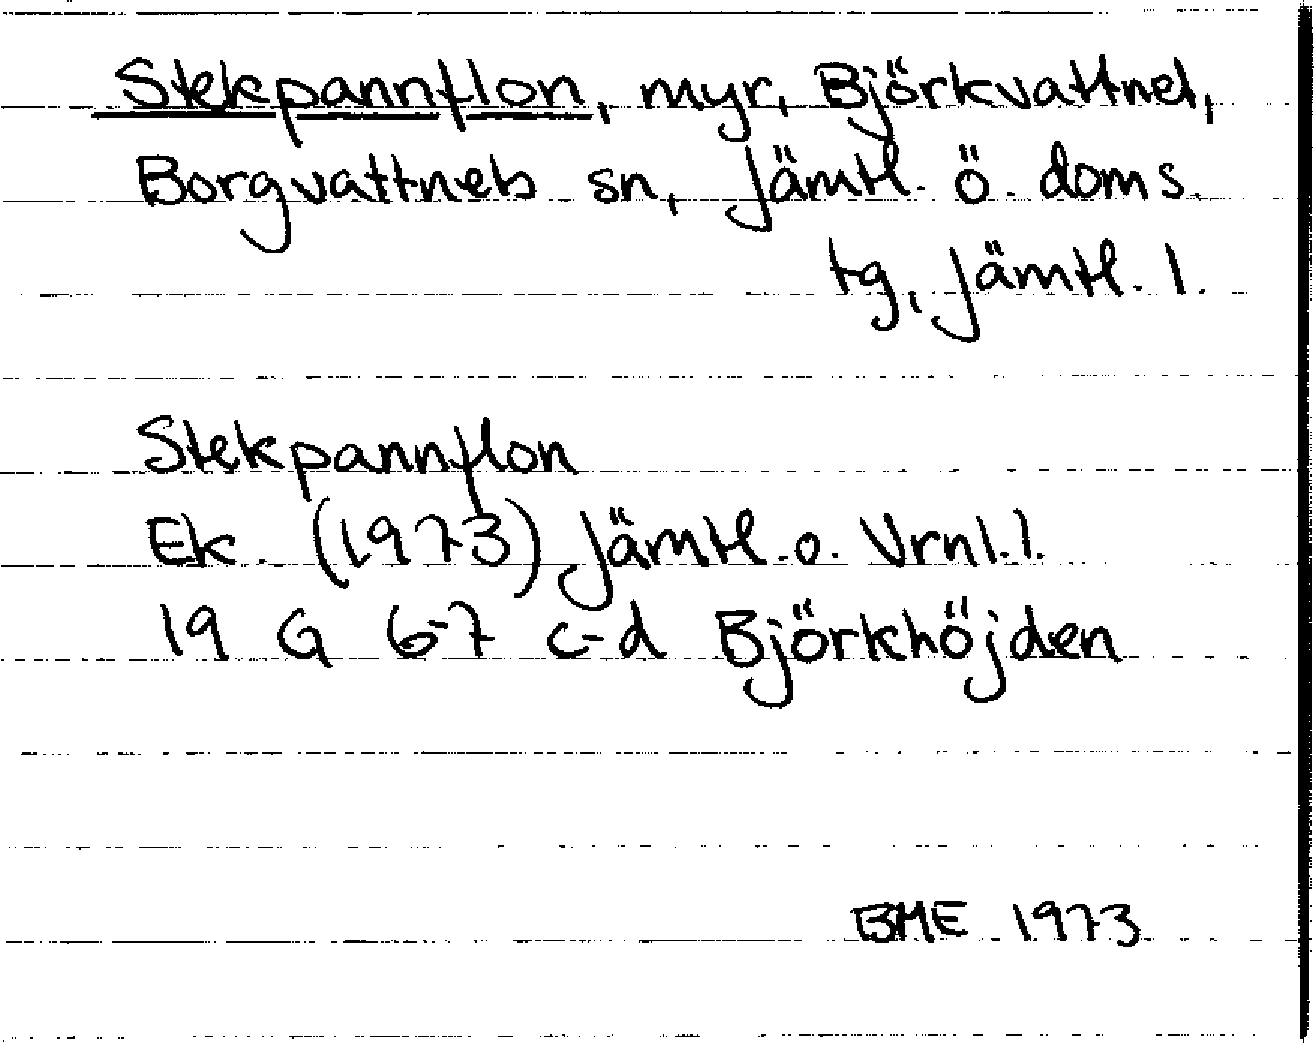 Stekpannflon, myr, Björkvattnet,
Borgvattnets sn, Jämtl. ö. doms.
tg, Jämtl. l.
Stekpannflon
Ek. (1973) Jämtl. o. Vrnl. l.
19 G 6-7 c-d Björkhöjden
BME 1973